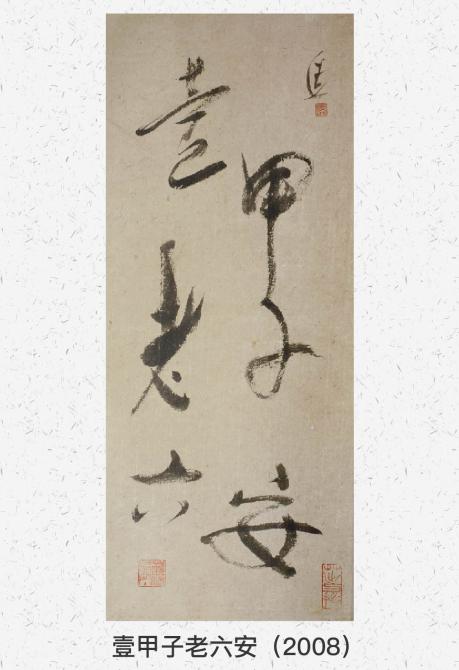 壹
甲子
老
六安
壹甲子老六安（2008）